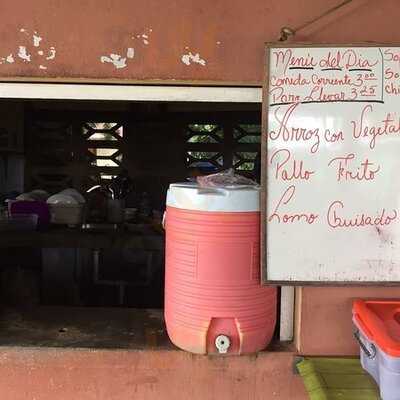 Menú del Día
Comida Corriente 3.00
Para Llevar 3.25
Arroz con Vegetal
Pollo Frito
Lomo Guisado